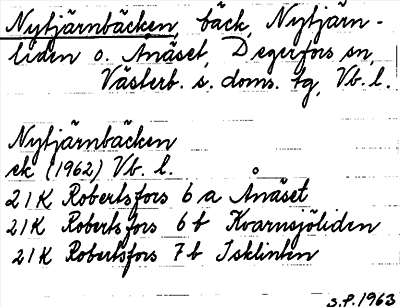 Nytjärnbäcken, bäck, Nytjärn-
liden o. Ånäset, Degerfors sn,
Västerb. s. doms. tg, Vb. l.
Nytjärnbäcken
ek (1962) Vb. l.
21K Robertsfors 6a Ånäset
21K Robertsfors 6b Kvarnsjöliden
21K Robertsfors 7b Isklinten
S.P. 1963